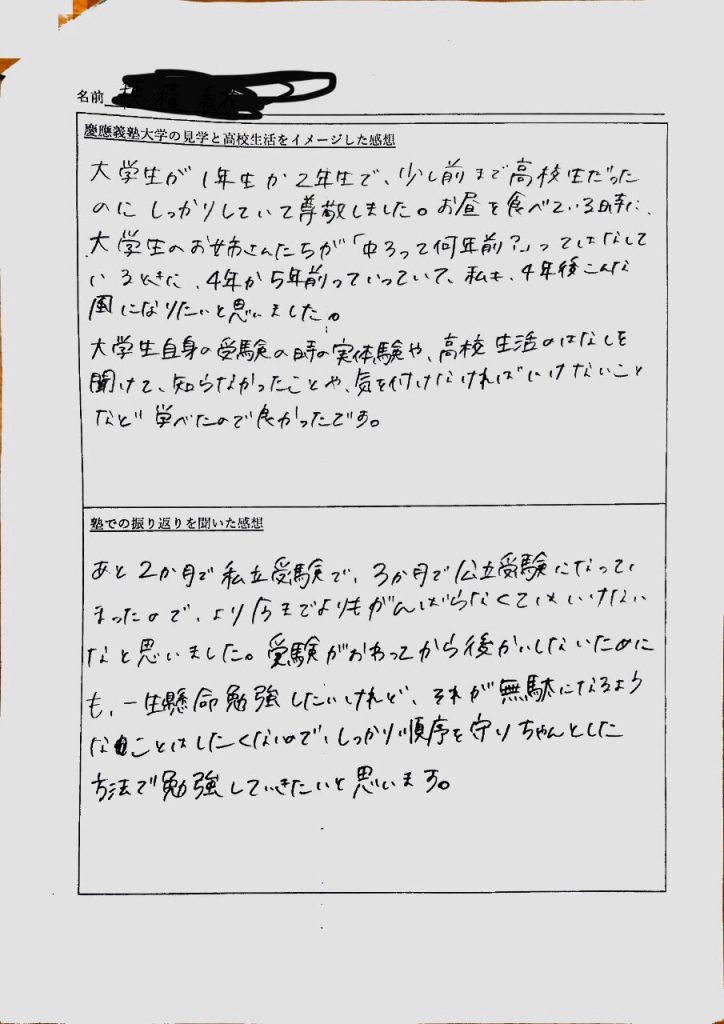 名前
慶應義塾大学の見学と高校生活をイメージした感想
大学生が1年生か2年生で、少し前まで高校生だった
のにしっかりしていて尊敬しました。お昼を食べている時に、
大学生のお姉さんたちが「中3って何年前?」ってはなして
いるときに、4年から5年前っていっていて、私も、4年後こんな
風になりたいと思いました。
大学生自身の受験の時の実体験や、高校生活のはなしを
聞けて、知らなかったことや、気を付けなければいけないこと
など学べたので良かったです。
塾での振り返りを聞いた感想
あと2か月で私立受験で、3か月で公立受験になってし
まったので、より今までよりもがんばらなくてはいけない
なと思いました。受験がおわってから後かいしないために
も、一生懸命勉強したいけれど、それが無駄になるよう
なことはしたくないので、しっかり順序を守りちゃんとした
方法で勉強していきたいと思います。